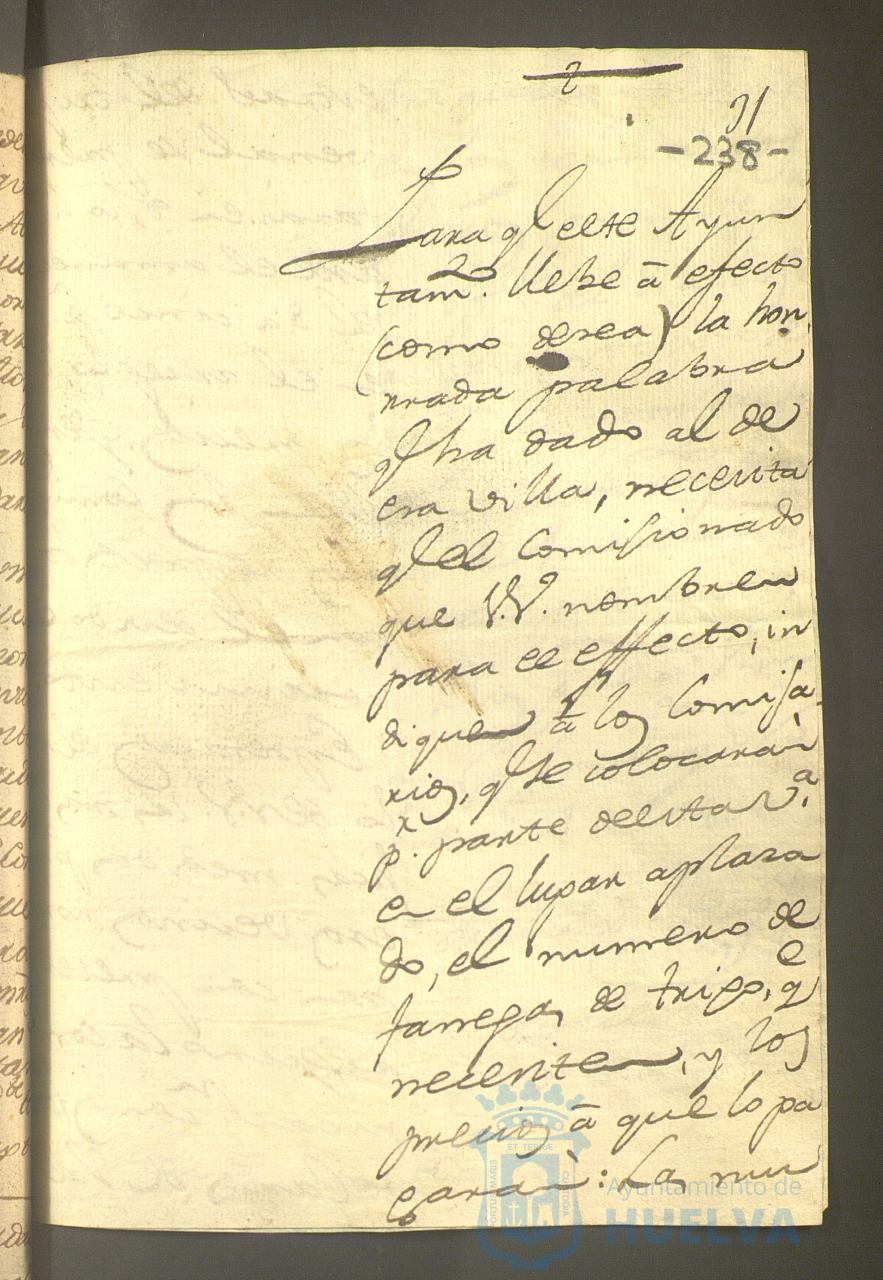 2
91
-238-
Para q̃ este Ayun
tamto. llebe â efecto
(como desea) la hon
rrada palabra
q̃ ha dado al de
esa villa, necesita
q̃ el Comisionado
que V.V. nombren
para el effecto, in
diquen â los Comisa
rios, q̃ se colocaràn
pr. parte de esta va.
en el lugar aplaza
do, el numero de
fanegas de trigo, qe
necesiten, y los
precios â que lo pa
garàn: La mu
ET TERRÆ
PORTUS MARIS
CUSTODIA
Ayuntamiento de
HUELVA